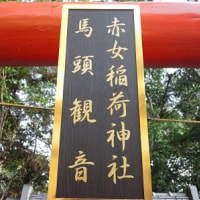 赤女稲荷神社
馬頭観音